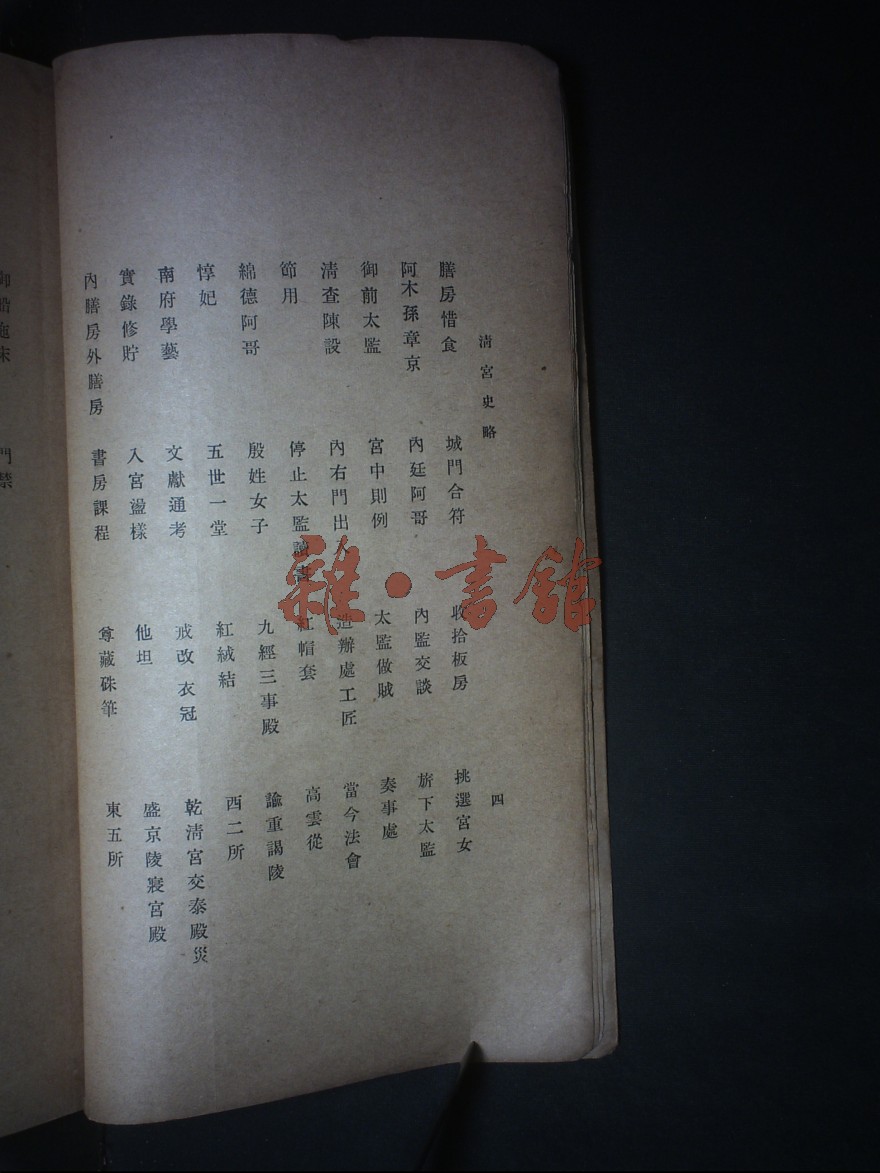 清宮史略 四
膳房惜食 城門合符 收拾板房 挑選宮女
阿木孫章京 內廷阿哥 內監交談 旂下太監
御前太監 宮中則例 太監做賊 奏事處
清查陳設 內右門出入 造辦處工匠 當今法會
節用 停止太監讀書 紅帽套 高雲從
綿德阿哥 殷姓女子 九經三事殿 諭重謁陵
惇妃 五世一堂 紅絨結 西二所
南府學藝 文獻通考 戒改衣冠 乾清宮交泰殿災
實錄修貯 入宮盪樣 他坦 盛京陵寢宮殿
內膳房外膳房 書房課程 尊藏硃筆 東五所
門禁
雜·書館